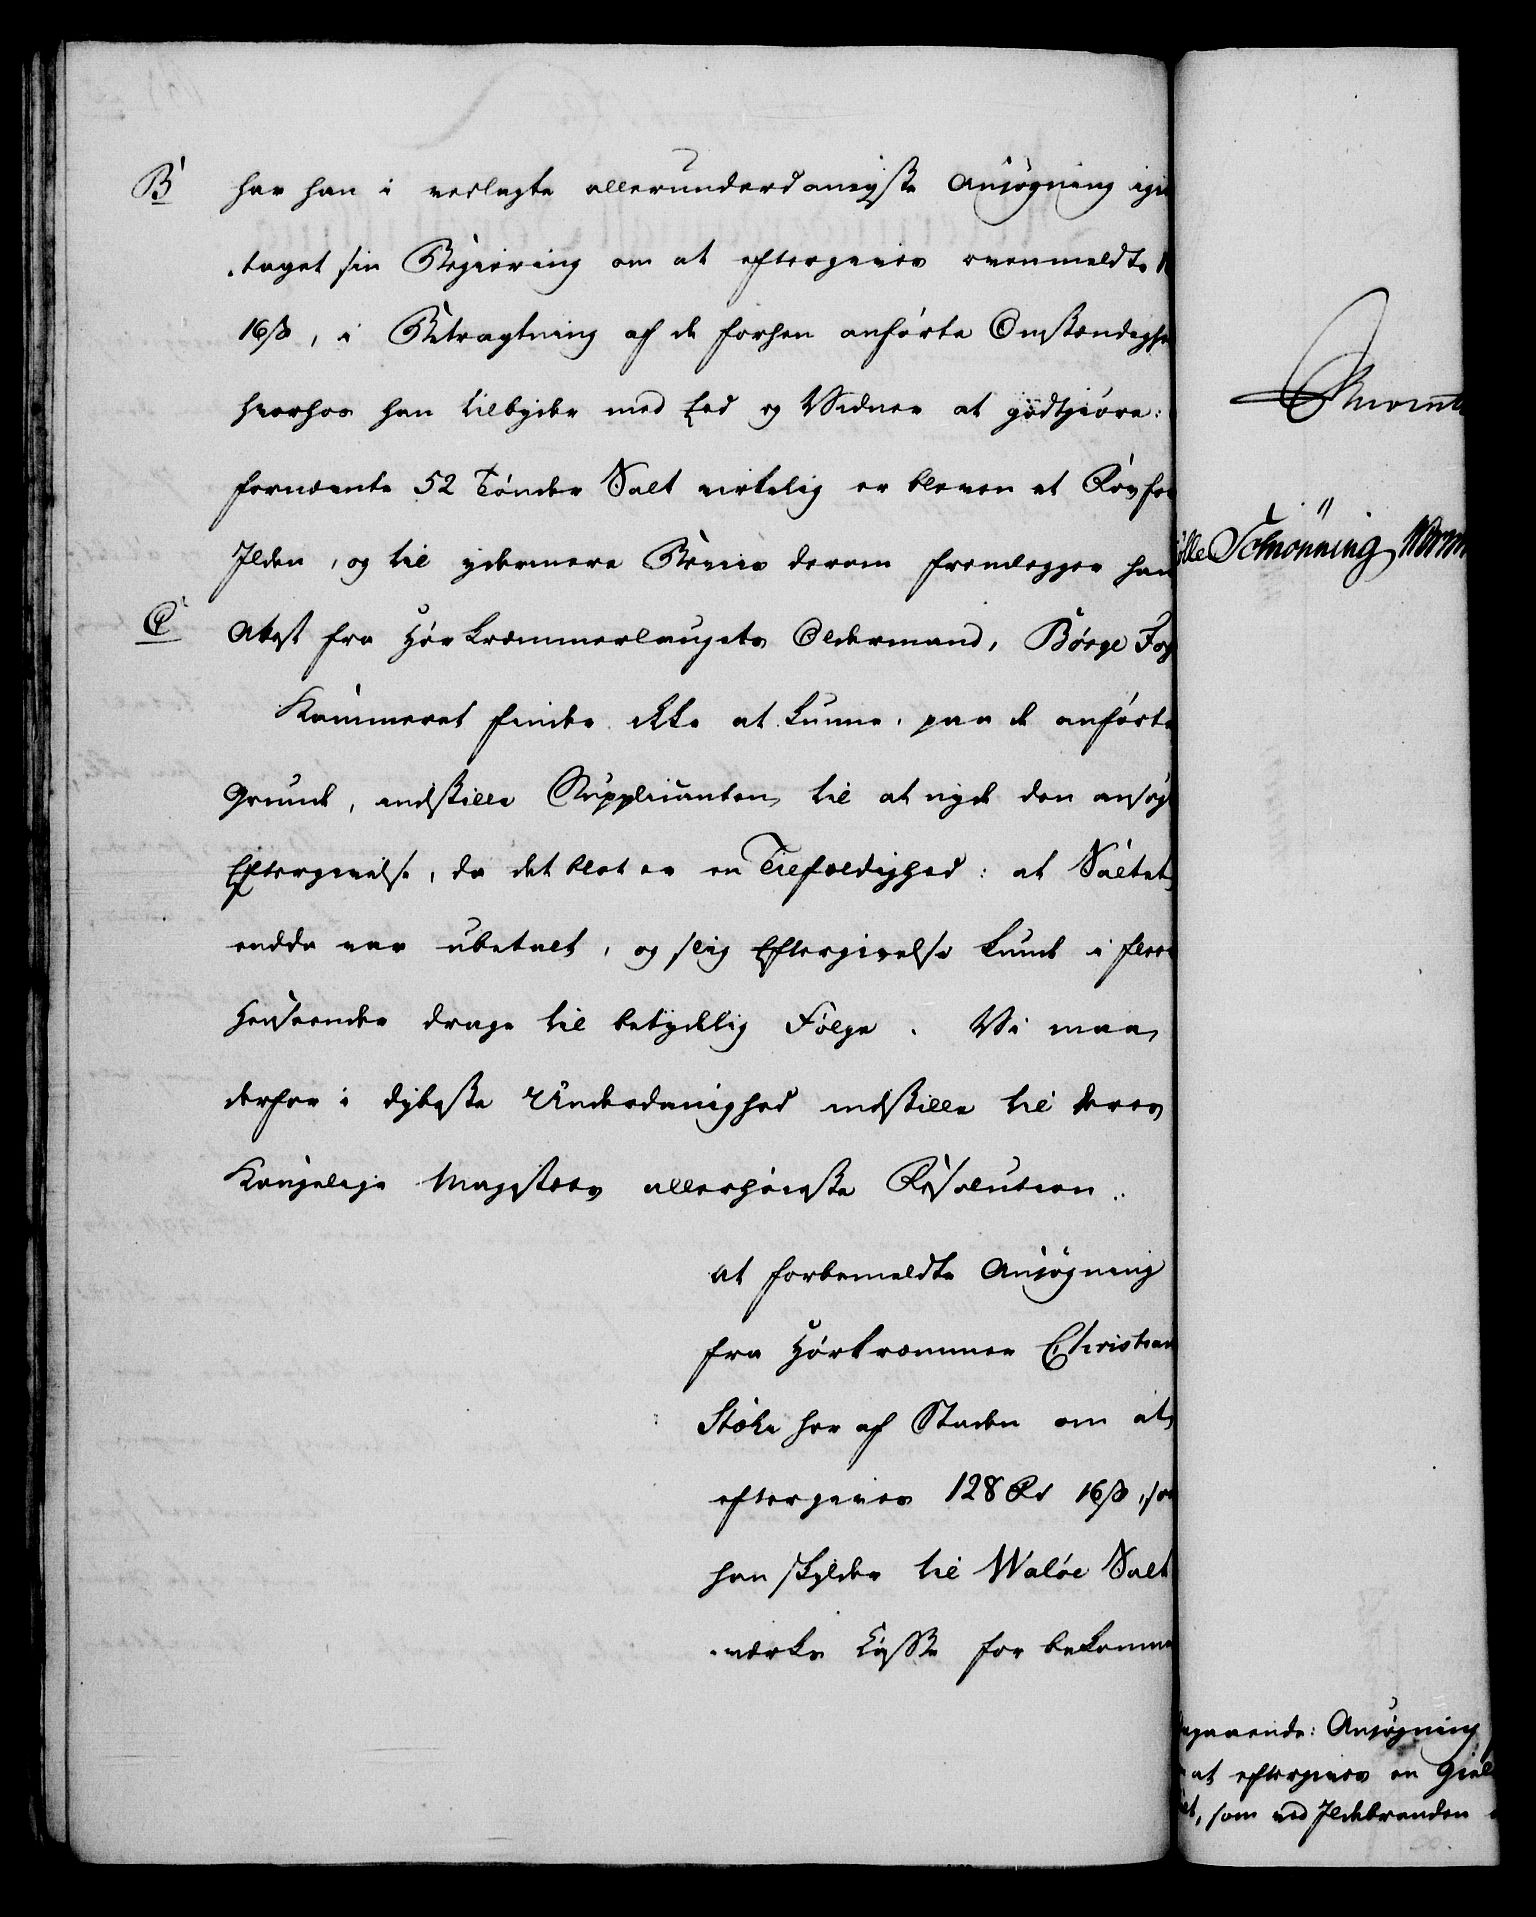 B
har han i vedlagte allerunderdanigste Ansøgning igien
taget sin Begiering om at eftergives ovenmeldte
16 ß, i Betragtning af de forhen anførte Omstændighe
hvorhos han tilbyder med Eed og Vidner at godtgiøre:
fornævnte 52 Tønder Salt virkelig er bleven et Rov for
Ilden, og til ydermere Beviis derom fremlegger han
C
Attest fra Hørkræmmerlaugets Oldermand, Børge Fog
Kammeret finder ikke at kunne, paa de anførte
Grunde, indstille Supplicanten til at nyde den ansøgte
Eftergivelse, da det blot er en Tilfældighed: at Saltet
endda var ubetalt, og slig Eftergivelse kunde i flere
Henseender drage til betydelig Følge. Vi maa
derfor i dybeste Underdanighed indstille til Deres
Kongelige Majestæts allerhøieste Resolution:
at forbemeldte Ansøgning
fra Hørkræmmer Christian
Støhr her af Staden om at
eftergives 128 Rd 16 ß, som
han skylder til Waløe Salt
værks Casse for bekomme
Schønning
gaaende: Ansøgning
at eftergives en Giel
, som ved Ildebranden